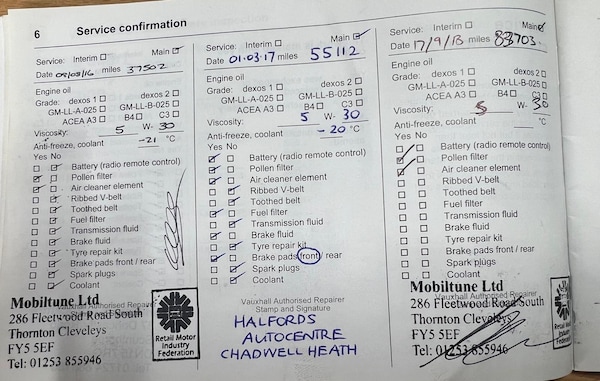 6 Service confirmation
Service: Interim Main
Date 08/03/16 miles 37502
Engine oil
Grade: dexos 1 dexos 2
GM-LL-A-025 GM-LL-B-025
ACEA A3 B4 C3
Viscosity: 5 W- 30
Anti-freeze, coolant -21 °C
Yes No
Battery (radio remote control)
Pollen filter
Air cleaner element
Ribbed V-belt
Toothed belt
Fuel filter
Transmission fluid
Brake fluid
Tyre repair kit
Brake pads front / rear
Spark plugs
Coolant
Vauxhall Authorised Repairer
Mobiltune Ltd
286 Fleetwood Road South
Thornton Cleveleys
FY5 5EF
Tel: 01253 855946
Retail Motor
Industry
Federation
Service: Interim Main
Date 01.03.17 miles 55112
Engine oil
Grade: dexos 1 dexos 2
GM-LL-A-025 GM-LL-B-025
ACEA A3 B4 C3
Viscosity: 5 W- 30
Anti-freeze, coolant -20 °C
Yes No
Battery (radio remote control)
Pollen filter
Air cleaner element
Ribbed V-belt
Toothed belt
Fuel filter
Transmission fluid
Brake fluid
Tyre repair kit
Brake pads front / rear
Spark plugs
Coolant
Vauxhall Authorised Repairer
Stamp and Signature
HALFORDS
AUTOCENTRE
CHADWELL HEATH
Service: Interim Main
Date 17/9/18 miles 83703
Engine oil
Grade: dexos 1 dexos 2
GM-LL-A-025 GM-LL-B-025
ACEA A3 B4 C3
Viscosity: 5 W- 30
Anti-freeze, coolant °C
Yes No
Battery (radio remote control)
Pollen filter
Air cleaner element
Ribbed V-belt
Toothed belt
Fuel filter
Transmission fluid
Brake fluid
Tyre repair kit
Brake pads front / rear
Spark plugs
Coolant
Vauxhall Authorised Repairer
Mobiltune Ltd
286 Fleetwood Road South
Thornton Cleveleys
FY5 5EF
Tel: 01253 855946
Retail Motor
Industry
Federation